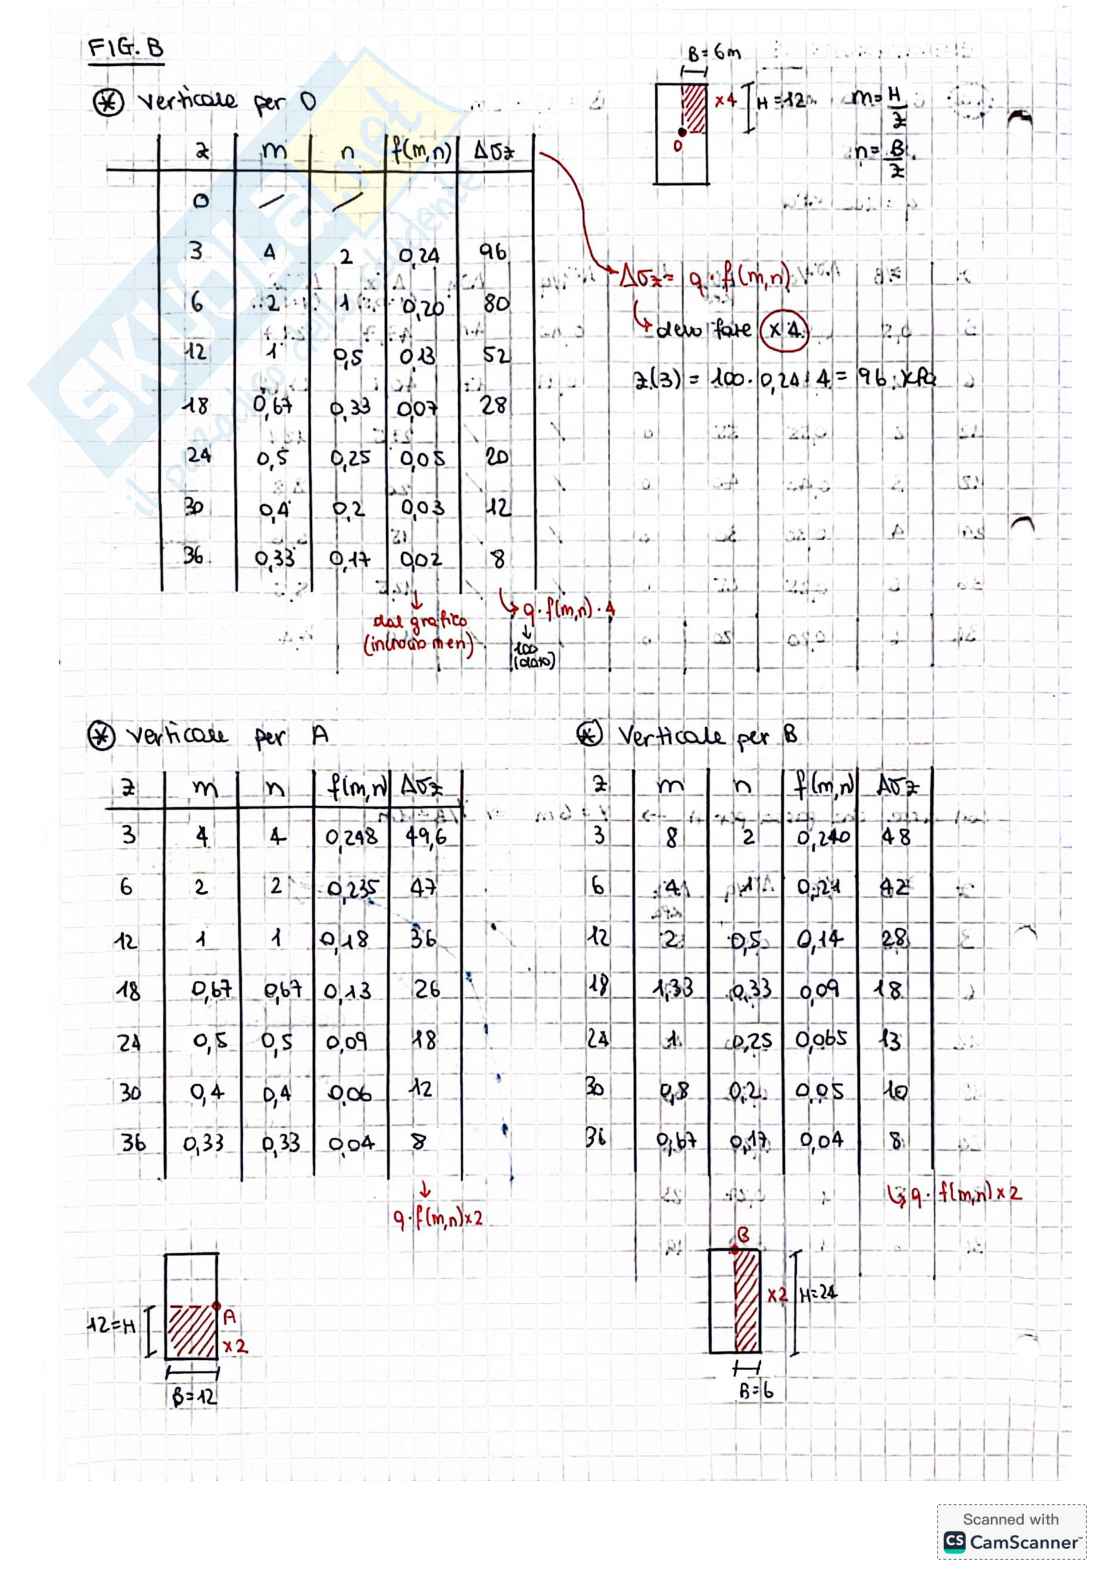 FIG. B
B=6m
⊛ Verticale per O
×4 H=12m m=H/z
n=B/z
O
z m n f(m,n) Δσz
0 / /
3 4 2 0,24 96
Δσz = q · f(m,n)
6 2 1 0,20 80
↳ devo fare ×4
12 1 0,5 0,13 52
z(3) = 100 · 0,24 · 4 = 96 kPa
18 0,67 0,33 0,07 28
24 0,5 0,25 0,05 20
30 0,4 0,2 0,03 12
36 0,33 0,17 0,02 8
dal grafico
(incrocio m e n)
↳ q · f(m,n) · 4
100
(dato)
⊛ Verticale per A
z m n f(m,n) Δσz
3 4 4 0,248 49,6
6 2 2 0,235 47
12 1 1 0,18 36
18 0,67 0,67 0,13 26
24 0,5 0,5 0,09 18
30 0,4 0,4 0,06 12
36 0,33 0,33 0,04 8
q · f(m,n) ×2
12=H
A
×2
B=12
⊛ Verticale per B
z m n f(m,n) Δσz
3 8 2 0,240 48
6 4 1 0,21 42
12 2 0,5 0,14 28
18 1,33 0,33 0,09 18
24 1 0,25 0,065 13
30 0,8 0,2 0,05 10
36 0,67 0,17 0,04 8
↳ q · f(m,n) ×2
B
×2 H=24
B=6
SKUOLA.net
Scanned with
CS CamScanner